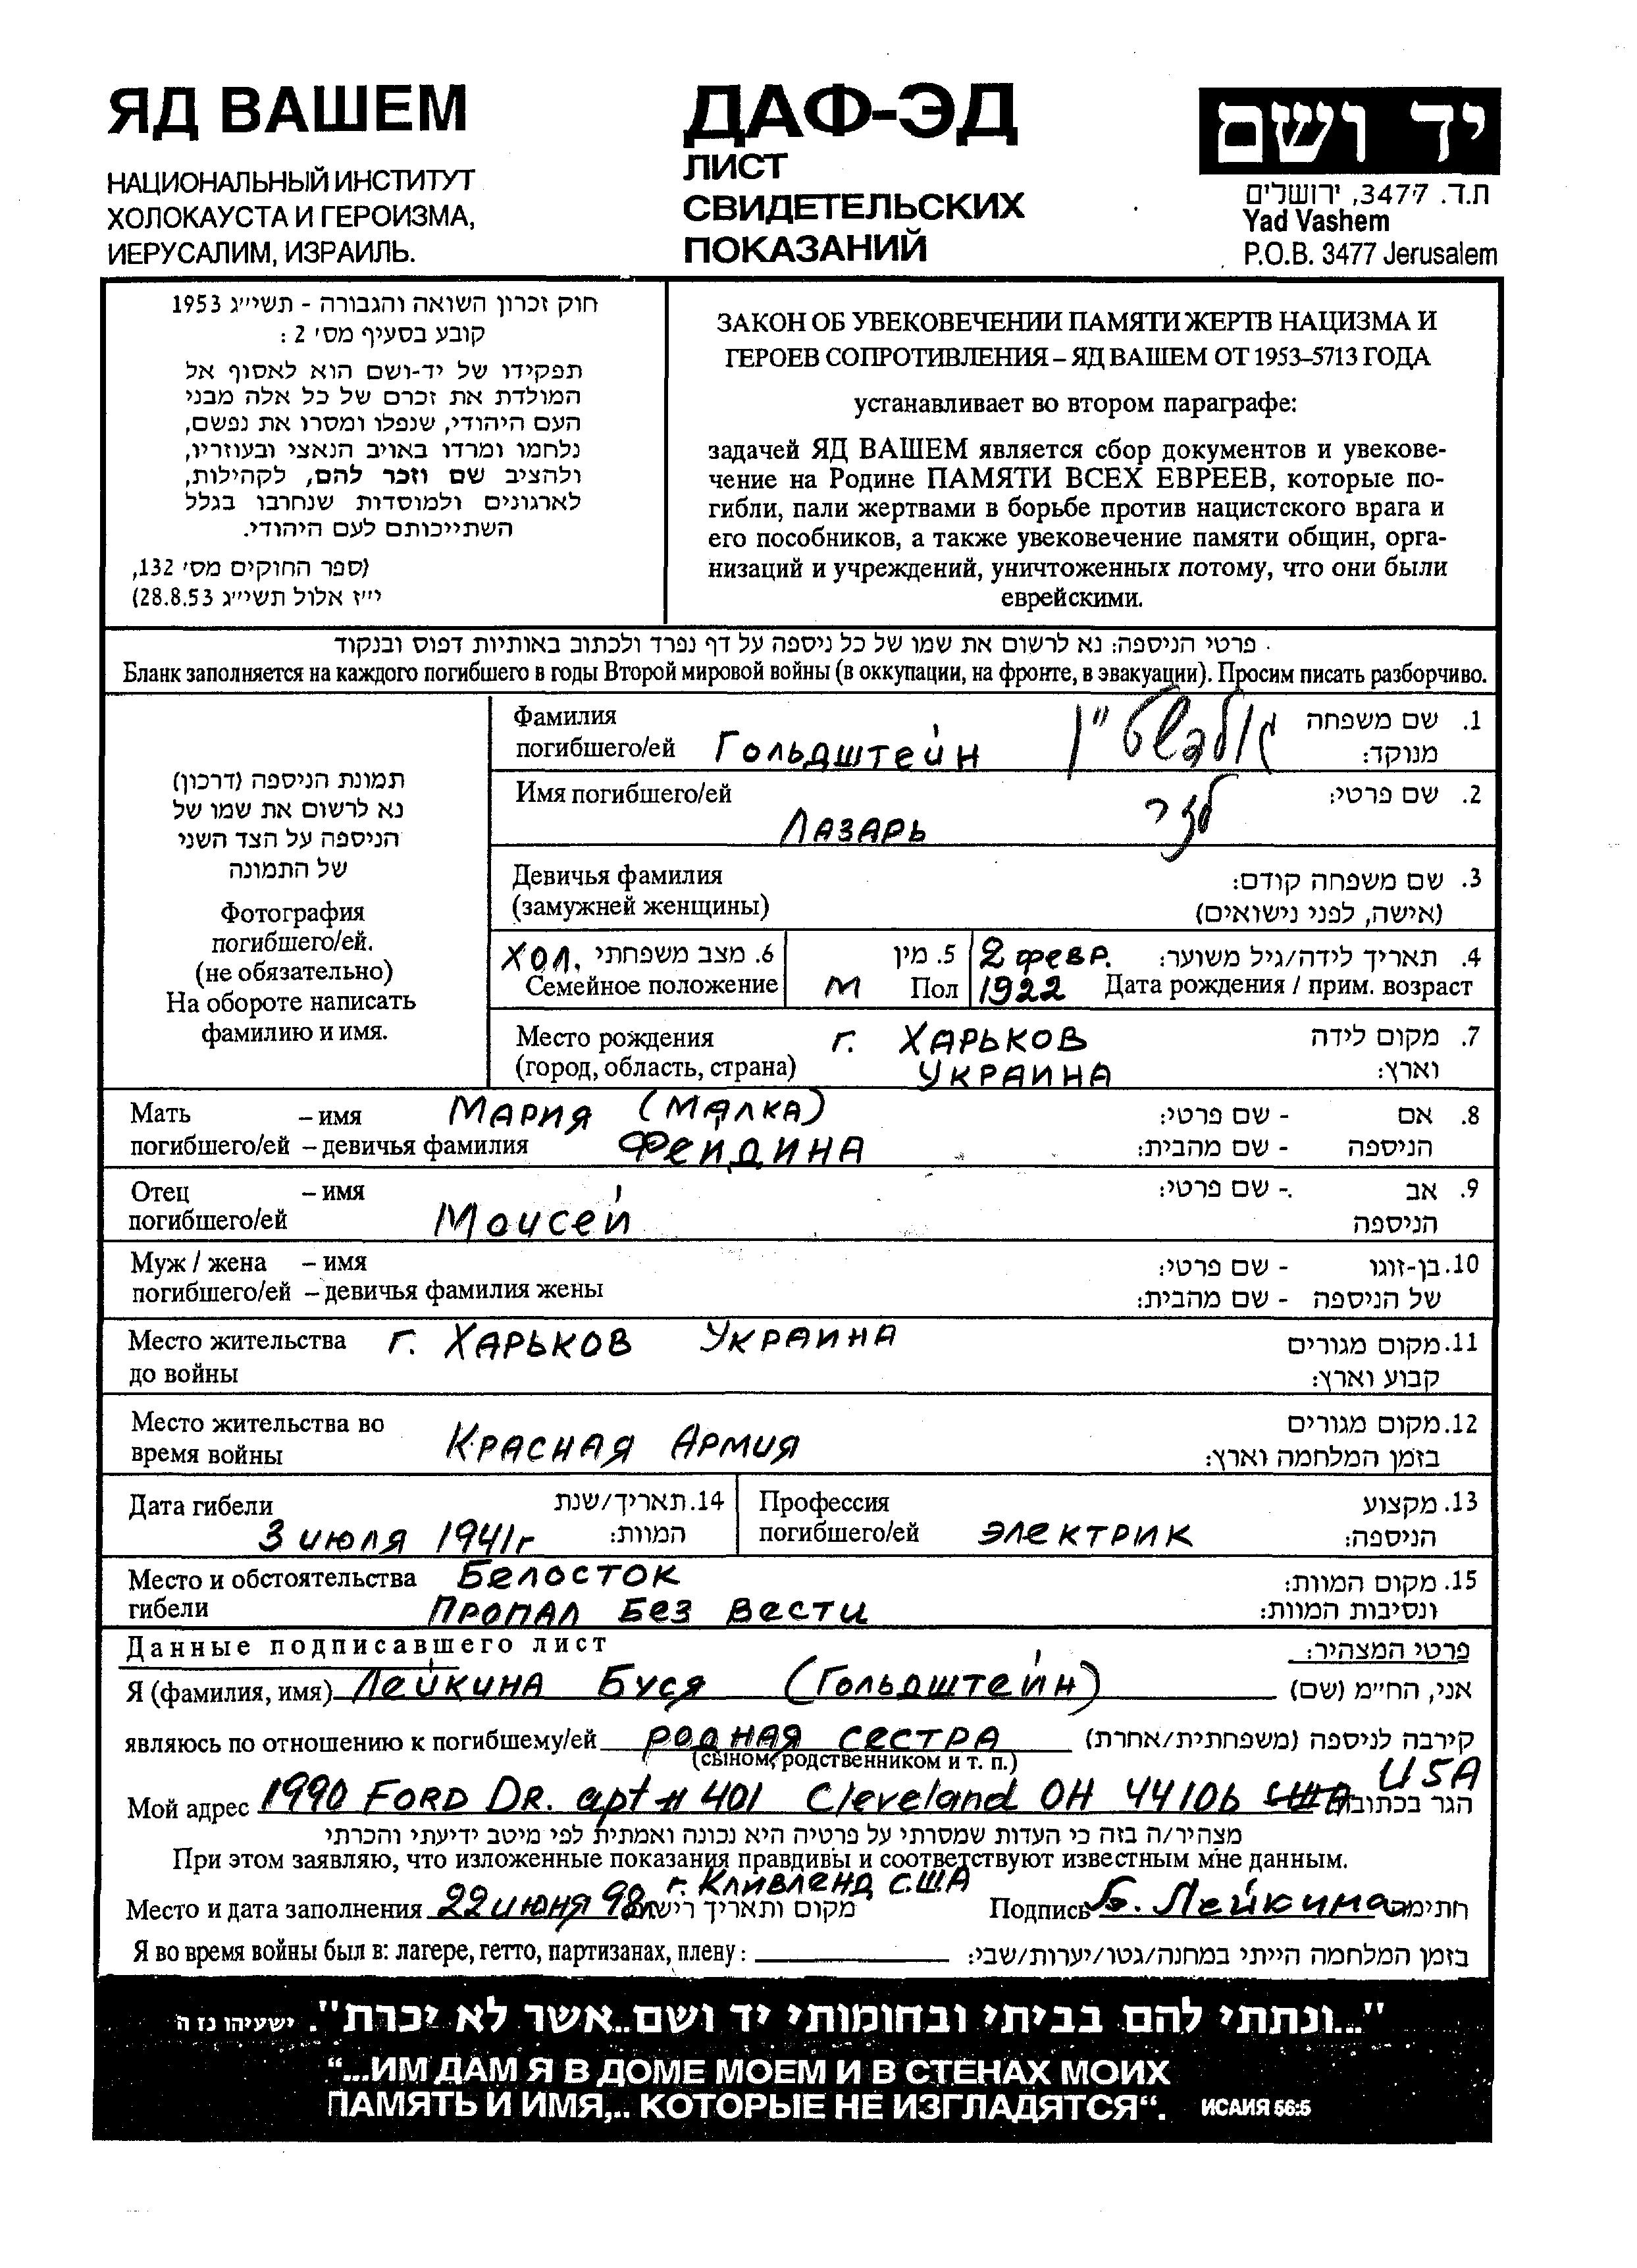 ЯД ВАШЕМ
НАЦИОНАЛЬНЫЙ ИНСТИТУТ
ХОЛОКАУСТА И ГЕРОИЗМА,
ИЕРУСАЛИМ, ИЗРАИЛЬ.
ДАФ-ЭД
ЛИСТ
СВИДЕТЕЛЬСКИХ
ПОКАЗАНИЙ
יד ושם
ת.ד. 3477, ירושלים
Yad Vashem
P.O.B. 3477 Jerusalem
חוק זכרון השואה והגבורה - תשי״ג 1953
קובע בסעיף מס׳ 2 :
תפקידו של יד-ושם הוא לאסוף אל
המולדת את זכרם של כל אלה מבני
העם היהודי, שנפלו ומסרו את נפשם,
נלחמו ומרדו באויב הנאצי ובעוזריו,
ולהציב שם וזכר להם, לקהילות,
לארגונים ולמוסדות שנחרבו בגלל
השתייכותם לעם היהודי.
(ספר החוקים מס׳ 132,
י״ז אלול תשי״ג 28.8.53)
ЗАКОН ОБ УВЕКОВЕЧЕНИИ ПАМЯТИ ЖЕРТВ НАЦИЗМА И
ГЕРОЕВ СОПРОТИВЛЕНИЯ – ЯД ВАШЕМ ОТ 1953–5713 ГОДА
устанавливает во втором параграфе:
задачей ЯД ВАШЕМ является сбор документов и увекове-
чение на Родине ПАМЯТИ ВСЕХ ЕВРЕЕВ, которые по-
гибли, пали жертвами в борьбе против нацистского врага и
его пособников, а также увековечение памяти общин, орга-
низаций и учреждений, уничтоженных потому, что они были
еврейскими.
פרטי הניספה: נא לרשום את שמו של כל ניספה על דף נפרד ולכתוב באותיות דפוס ובנקוד
Бланк заполняется на каждого погибшего в годы Второй мировой войны (в оккупации, на фронте, в эвакуации). Просим писать разборчиво.
תמונת הניספה (דרכון)
נא לרשום את שמו של
הניספה על הצד השני
של התמונה
Фотография
погибшего/ей.
(не обязательно)
На обороте написать
фамилию и имя.
Фамилия 1. שם משפחה
погибшего/ей Гольдштейн גולדשטיין מנוקד:
Имя погибшего/ей 2. שם פרטי:
Лазарь לזר
Девичья фамилия 3. שם משפחה קודם:
(замужней женщины) (אישה, לפני נישואים)
хол. 6. מצב משפחתי 5. מין 2 февр. 4. תאריך לידה/גיל משוער:
Семейное положение М Пол 1922 Дата рождения / прим. возраст
Место рождения г. Харьков 7. מקום לידה
(город, область, страна) Украина וארץ:
Мать – имя Мария (Малка) 8. אם - שם פרטי:
погибшего/ей – девичья фамилия Фейдина הניספה - שם מהבית:
Отец – имя 9. אב - שם פרטי:
погибшего/ей Моисей הניספה
Муж / жена – имя 10. בן-זוגו - שם פרטי:
погибшего/ей – девичья фамилия жены של הניספה - שם מהבית:
Место жительства г. Харьков Украина 11. מקום מגורים
до войны קבוע וארץ:
Место жительства во 12. מקום מגורים
время войны Красная Армия בזמן המלחמה וארץ:
Дата гибели 14. תאריך/שנת Профессия 13. מקצוע
3 июля 1941г המוות: погибшего/ей электрик הניספה:
Место и обстоятельства Белосток 15. מקום המוות:
гибели Пропал без вести ונסיבות המוות:
Данные подписавшего лист פרטי המצהיר:
Я (фамилия, имя) Лейкина Буся (Гольдштейн) אני, הח״מ (שם)
являюсь по отношению к погибшему/ей родная сестра קירבה לניספה (משפחתית/אחרת)
(сыном, родственником и т. п.)
Мой адрес 1990 Ford Dr. apt # 401 Cleveland OH 44106 США USA הגר בכתובת
מצהיר/ה בזה כי העדות שמסרתי על פרטיה היא נכונה ואמתית לפי מיטב ידיעתי והכרתי
При этом заявляю, что изложенные показания правдивы и соответствуют известным мне данным.
г. Кливленд США
Место и дата заполнения 22 июня 98 מקום ותאריך רישום Подпись Б. Лейкина חתימה
Я во время войны был в: лагере, гетто, партизанах, плену : בזמן המלחמה הייתי במחנה/גטו/יערות/שבי:
"...ונתתי להם בביתי ובחומותי יד ושם..אשר לא יכרת". ישעיהו נז ה
“...ИМ ДАМ Я В ДОМЕ МОЕМ И В СТЕНАХ МОИХ
ПАМЯТЬ И ИМЯ,.. КОТОРЫЕ НЕ ИЗГЛАДЯТСЯ“. ИСАИЯ 56:5